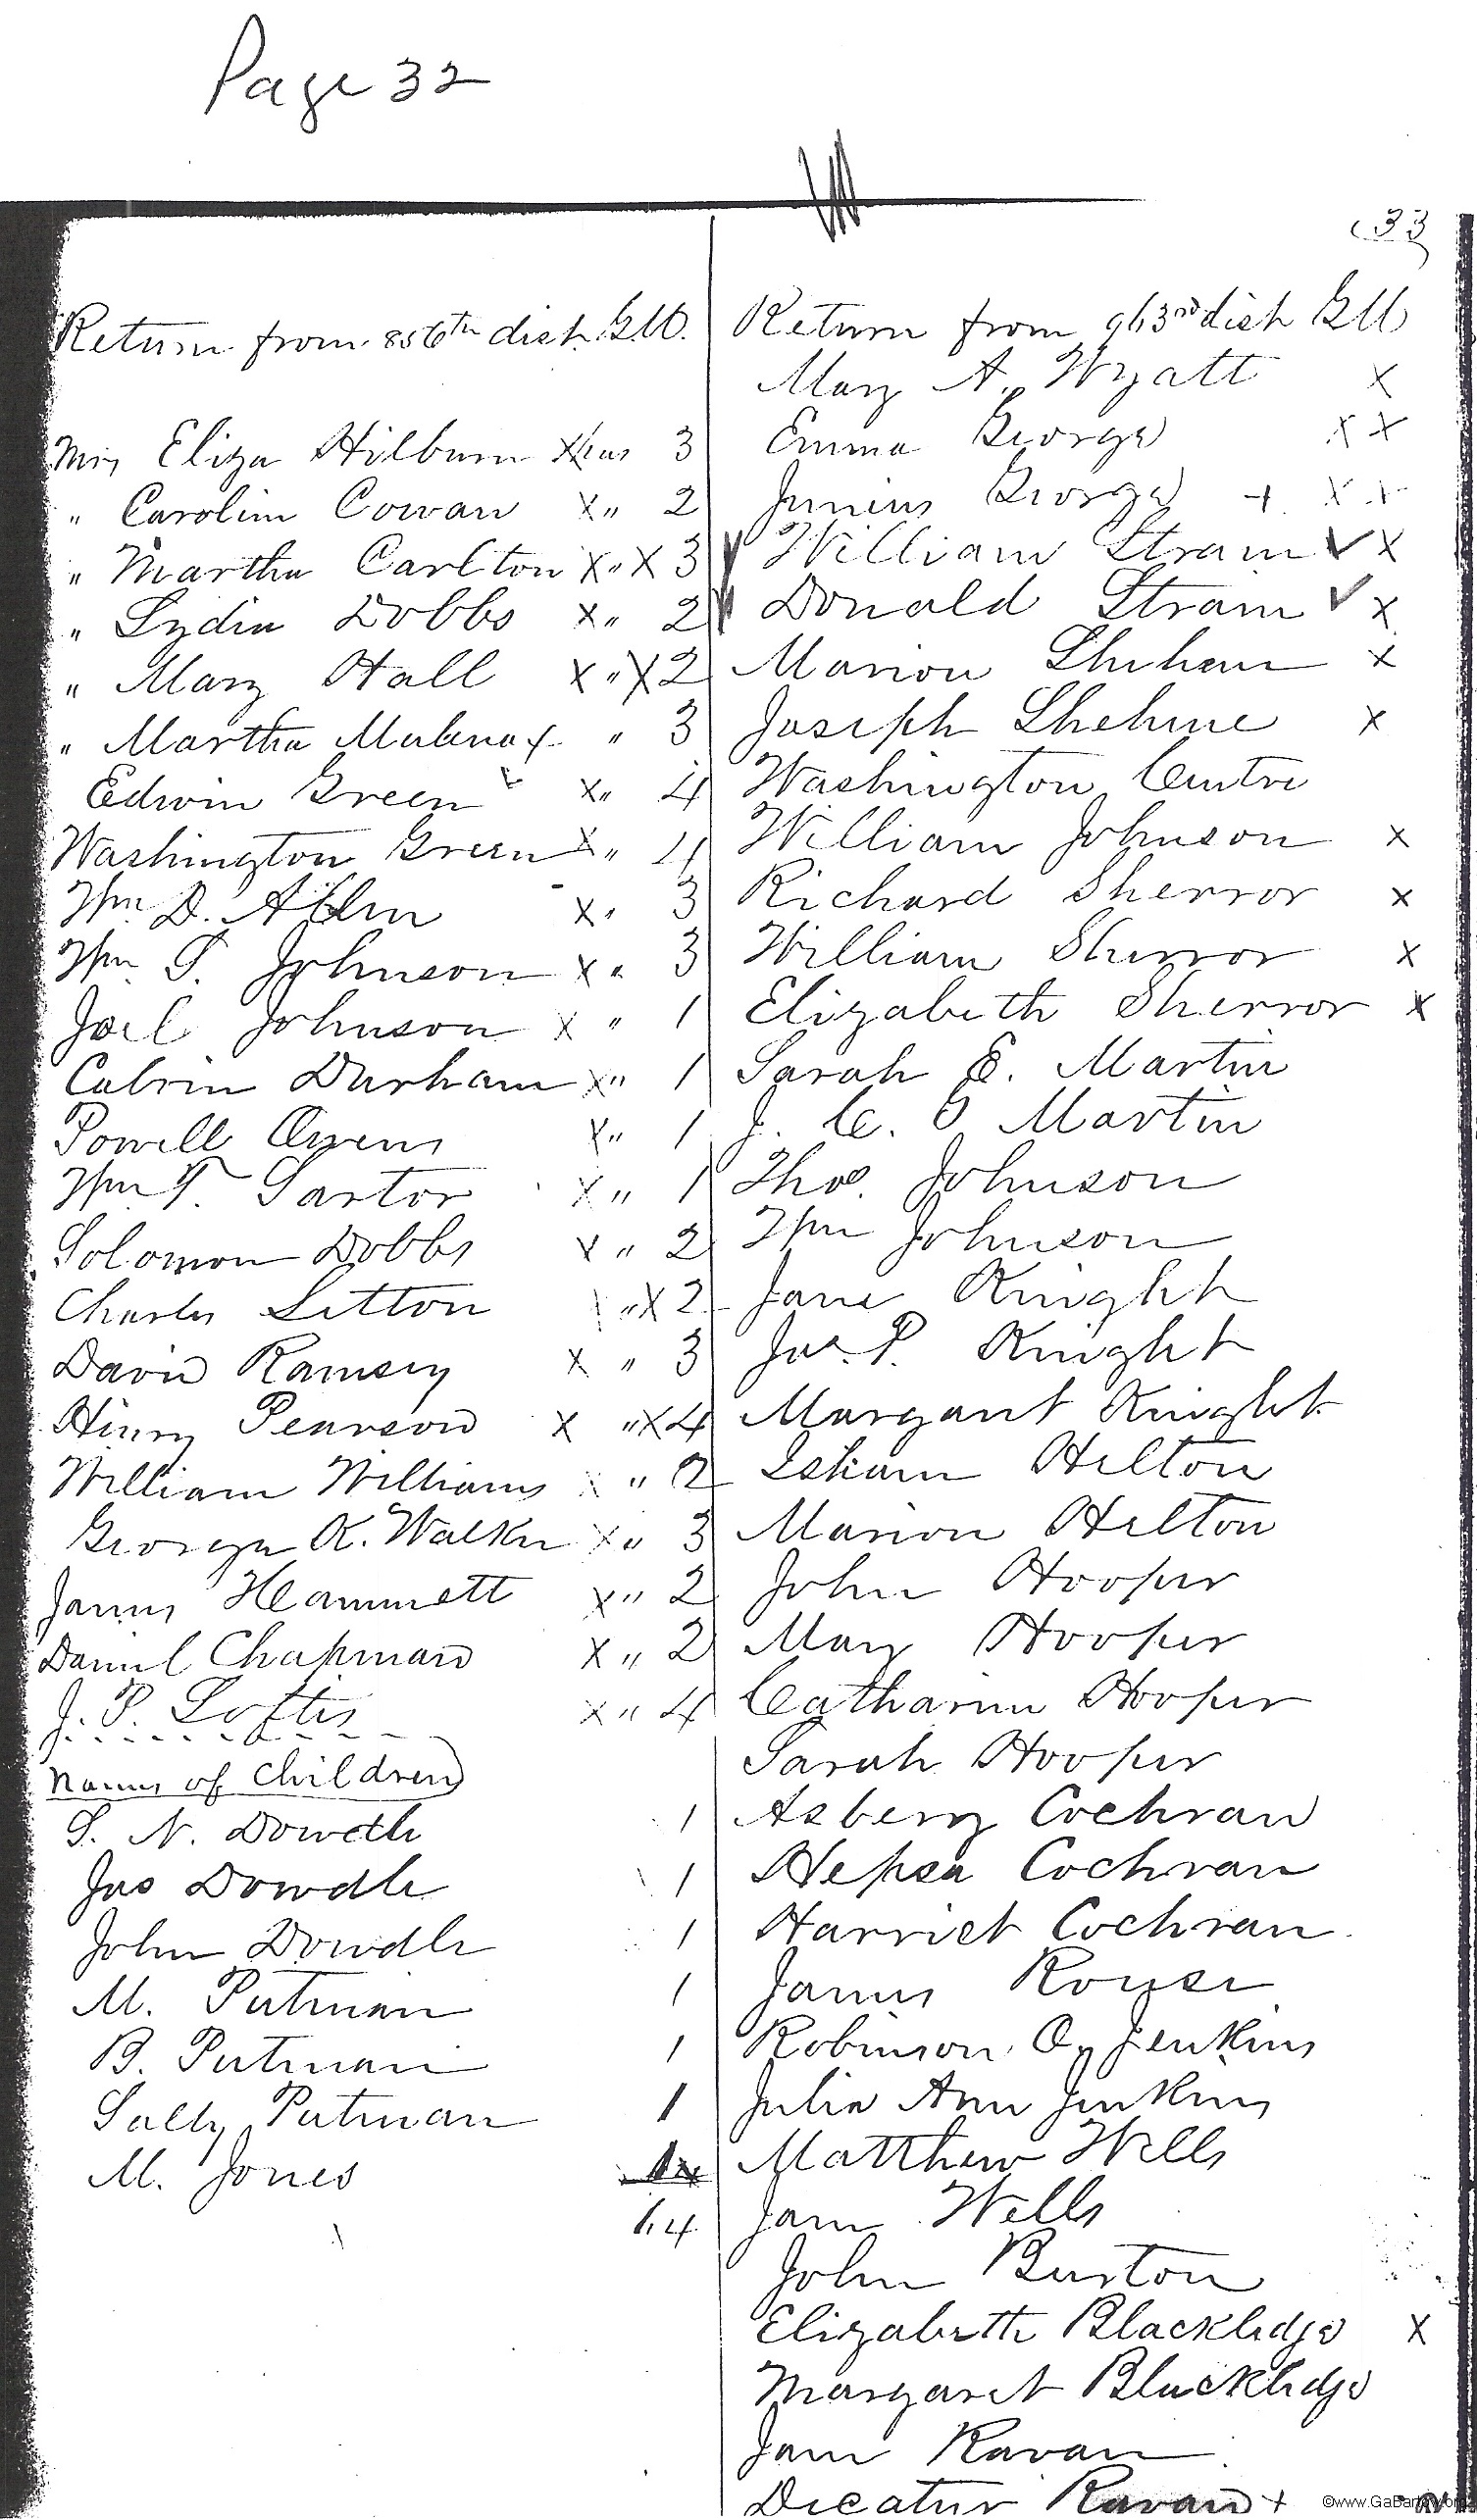 Page 32
33
Return from 856th dist G.M.
Mrs Eliza Hilburn X has 3
" Carolin Cowan X " 2
" Martha Carlton X " X 3
" Lydia Dobbs X " 2
" Mary Hall X " X 2
" Martha Mulanax " 3
Edwin Green X " 4
Washington Green X " 4
Wm D. Allen X " 3
Wm S. Johnson X " 3
Joel Johnson X " 1
Calvin Durham X " 1
Powell Owens X " 1
Wm T. Sartor X " 1
Solomon Dobbs X " 2
Charles Litton \ " X 2
David Ramsey X " 3
Hinry Pearson X " X 4
William Williams X " 2
George K. Walker X " 3
James Hammett X " 2
Daniel Chapman X " 2
J. P. Loftis X " 4
Names of Children
S. N. Dowdle 1
Jas Dowdle 1
John Dowdle 1
M. Putman 1
B. Putman 1
Sally Putman 1
M. Jones
64
Return from 963rd dist G M
Mary A. Wyatt X
Emma George X X
Junius George + X X
William Strain ✓ X
Donald Strain ✓ X
Marion X
Joseph Shehane X
Washington Centre
William Johnson X
Richard Sherror X
William Sherror X
Elizabeth Sherror X
Sarah E. Martin
J. C. O Martin
Thos. Johnson
Wm Johnson
Jane Knight
Jas. P. Knight
Margaret Knight
Isham Hilton
Marion Hilton
John Hooper
Mary Hooper
Catharine Hooper
Sarah Hooper
Asbery Cochran
Hepsa Cochran
Harriet Cochran
James Rouse
Robinson O. Jenkins
Julia Ann Jenkins
Matthew Wells
Jane Wells
John Burton
Elizabeth Blackledge X
Margaret Blackledge
Jane Ravan
Decatur Ravan +